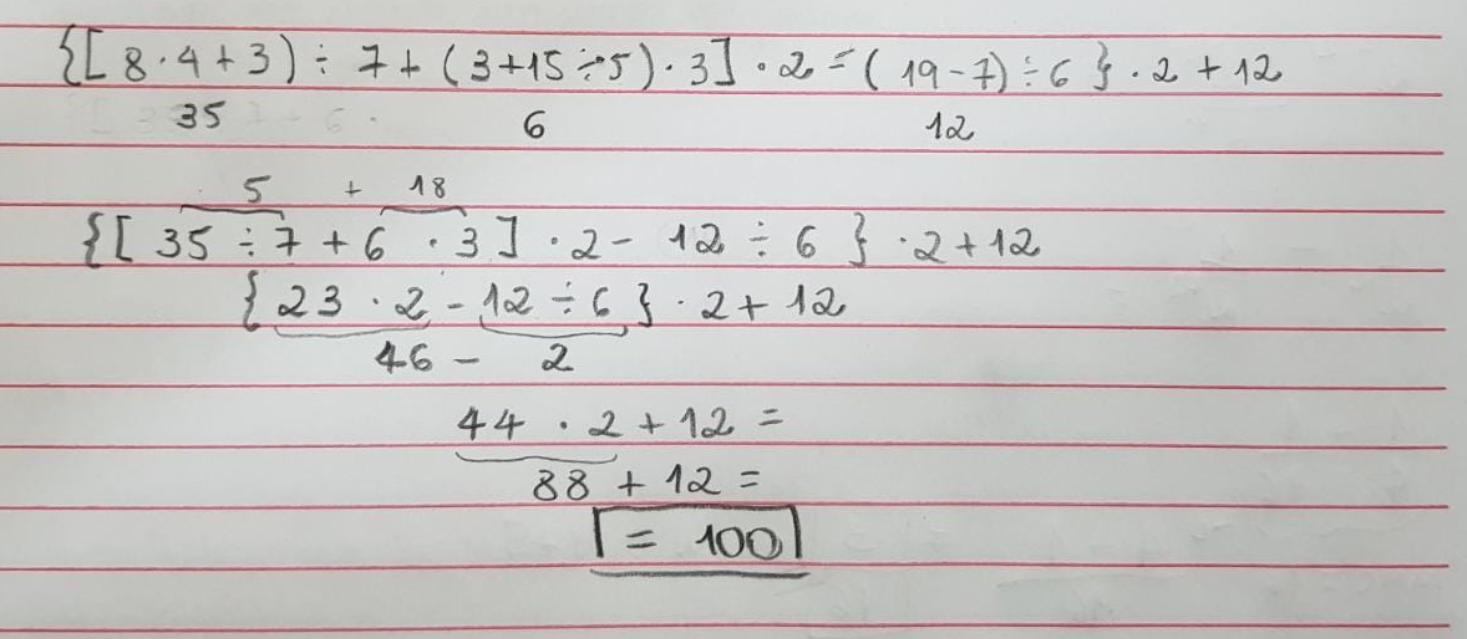 {[ 8 · 4 + 3 ) ÷ 7 + ( 3 + 15 ÷ 5 ) · 3 ] · 2 - ( 19 - 7 ) ÷ 6 } · 2 + 12
35 6 12
5 + 18
{[ 35 ÷ 7 + 6 · 3 ] · 2 - 12 ÷ 6 } · 2 + 12
{ 23 · 2 - 12 ÷ 6 } · 2 + 12
46 - 2
44 · 2 + 12 =
88 + 12 =
= 100